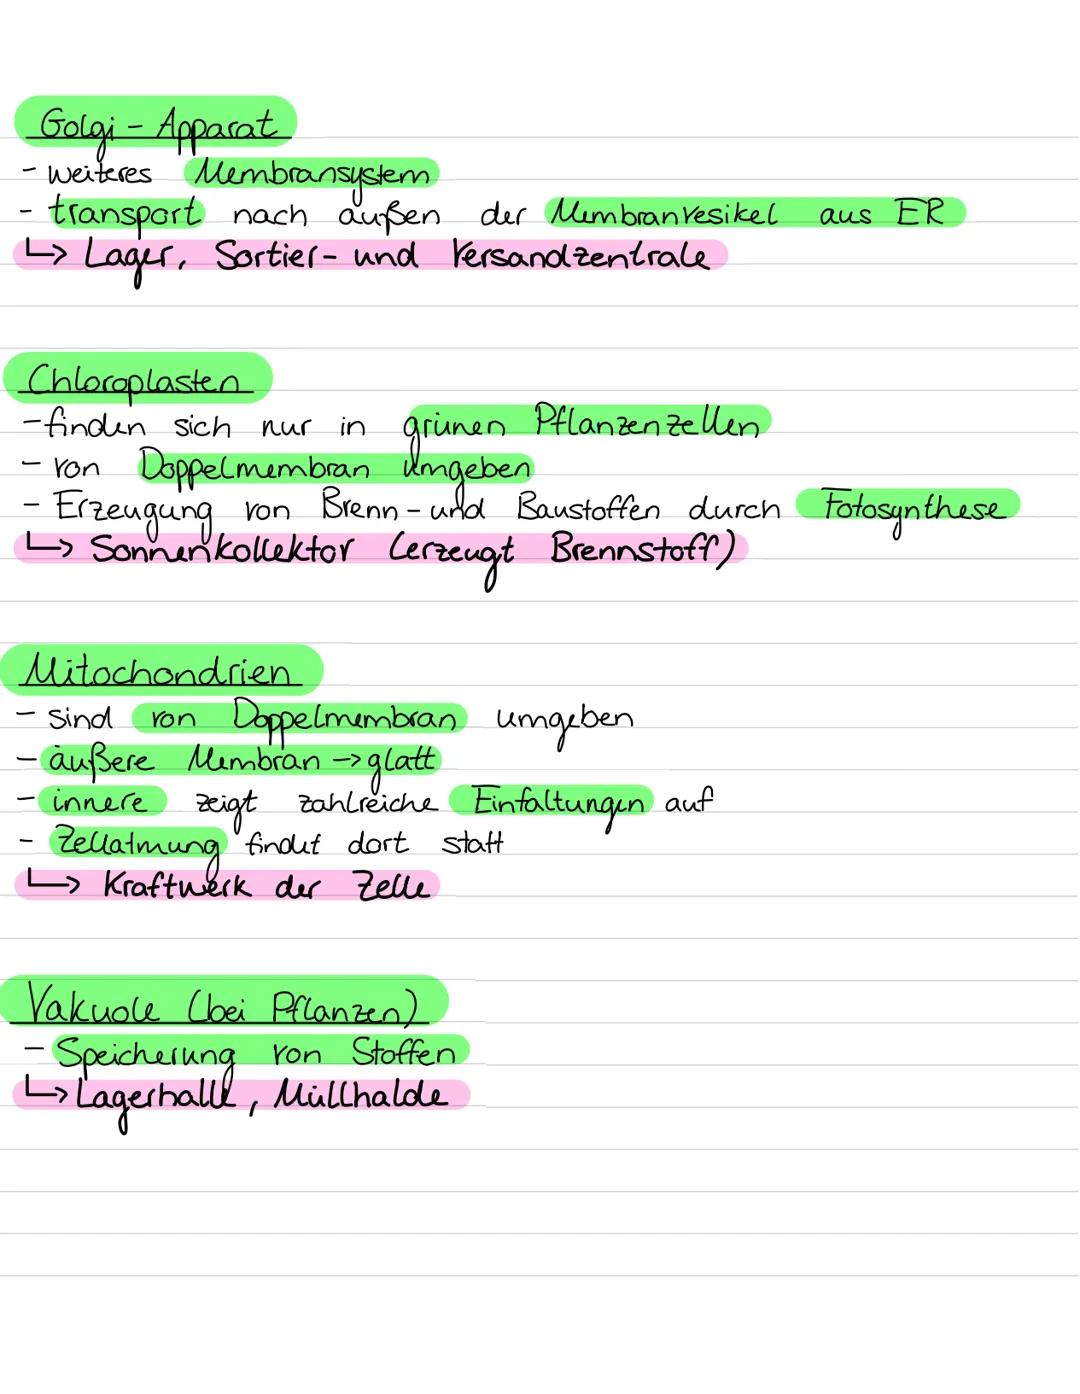 Golgi - Apparat
- weiteres Membransystem
- transport nach außen der Membranvesikel aus ER
↳ Lager, Sortier- und Versandzentrale
Chloroplasten
- finden sich nur in grünen Pflanzenzellen
- von Doppelmembran umgeben
- Erzeugung von Brenn- und Baustoffen durch Fotosynthese
↳ Sonnenkollektor (erzeugt Brennstoff)
Mitochondrien
- sind von Doppelmembran umgeben
- äußere Membran → glatt
- innere zeigt zahlreiche Einfaltungen auf
- Zellatmung findet dort statt
↳ Kraftwerk der Zelle
Vakuole (bei Pflanzen)
- Speicherung von Stoffen
↳ Lagerhalle, Müllhalde